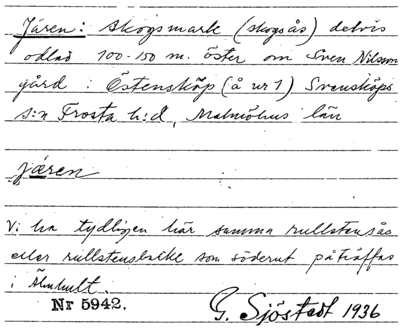 Jären: Skogsmark (skogsås) delvis
odlad 100-150 m. öster om Sven Nilssons
gård i Östensköp (å nr 1) Svensköps
s:n Frosta h:d, Malmöhus län
jären
Vi ha tydligen här samma rullstensås
eller rullstensbälte som söderut påträffas
i Älmhult.
Nr 5942.
G. Sjöstedt 1936